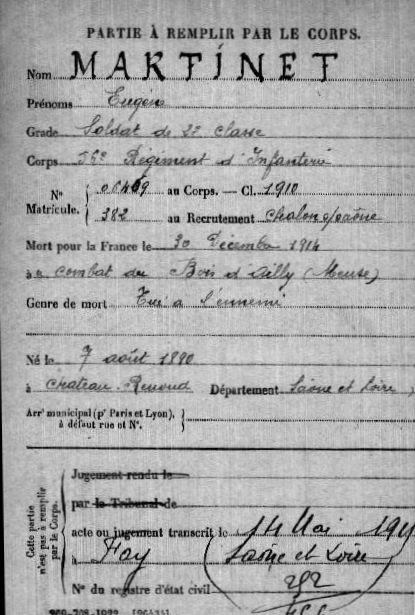 PARTIE À REMPLIR PAR LE CORPS.
Nom MARTINET
Prénoms Eugène
Grade Soldat de 2e classe
Corps 56e Régiment d'Infanterie
N° Matricule. { 06469 au Corps. — Cl. 1910
382 au Recrutement Chalon s/ Saône
Mort pour la France le 30 Décembre 1914
à combat du Bois d'Ailly (Meuse)
Genre de mort Tué à l'ennemi
Né le 7 août 1890
à Chateau-Renaud Département Saône et Loire
Arrt municipal (pr Paris et Lyon), à défaut rue et N°.
Cette partie n'est pas à remplir par le Corps.
Jugement rendu le
par le Tribunal de
acte ou jugement transcrit le 14 Mai
à Fay Saône et Loire
N° du registre d'état civil